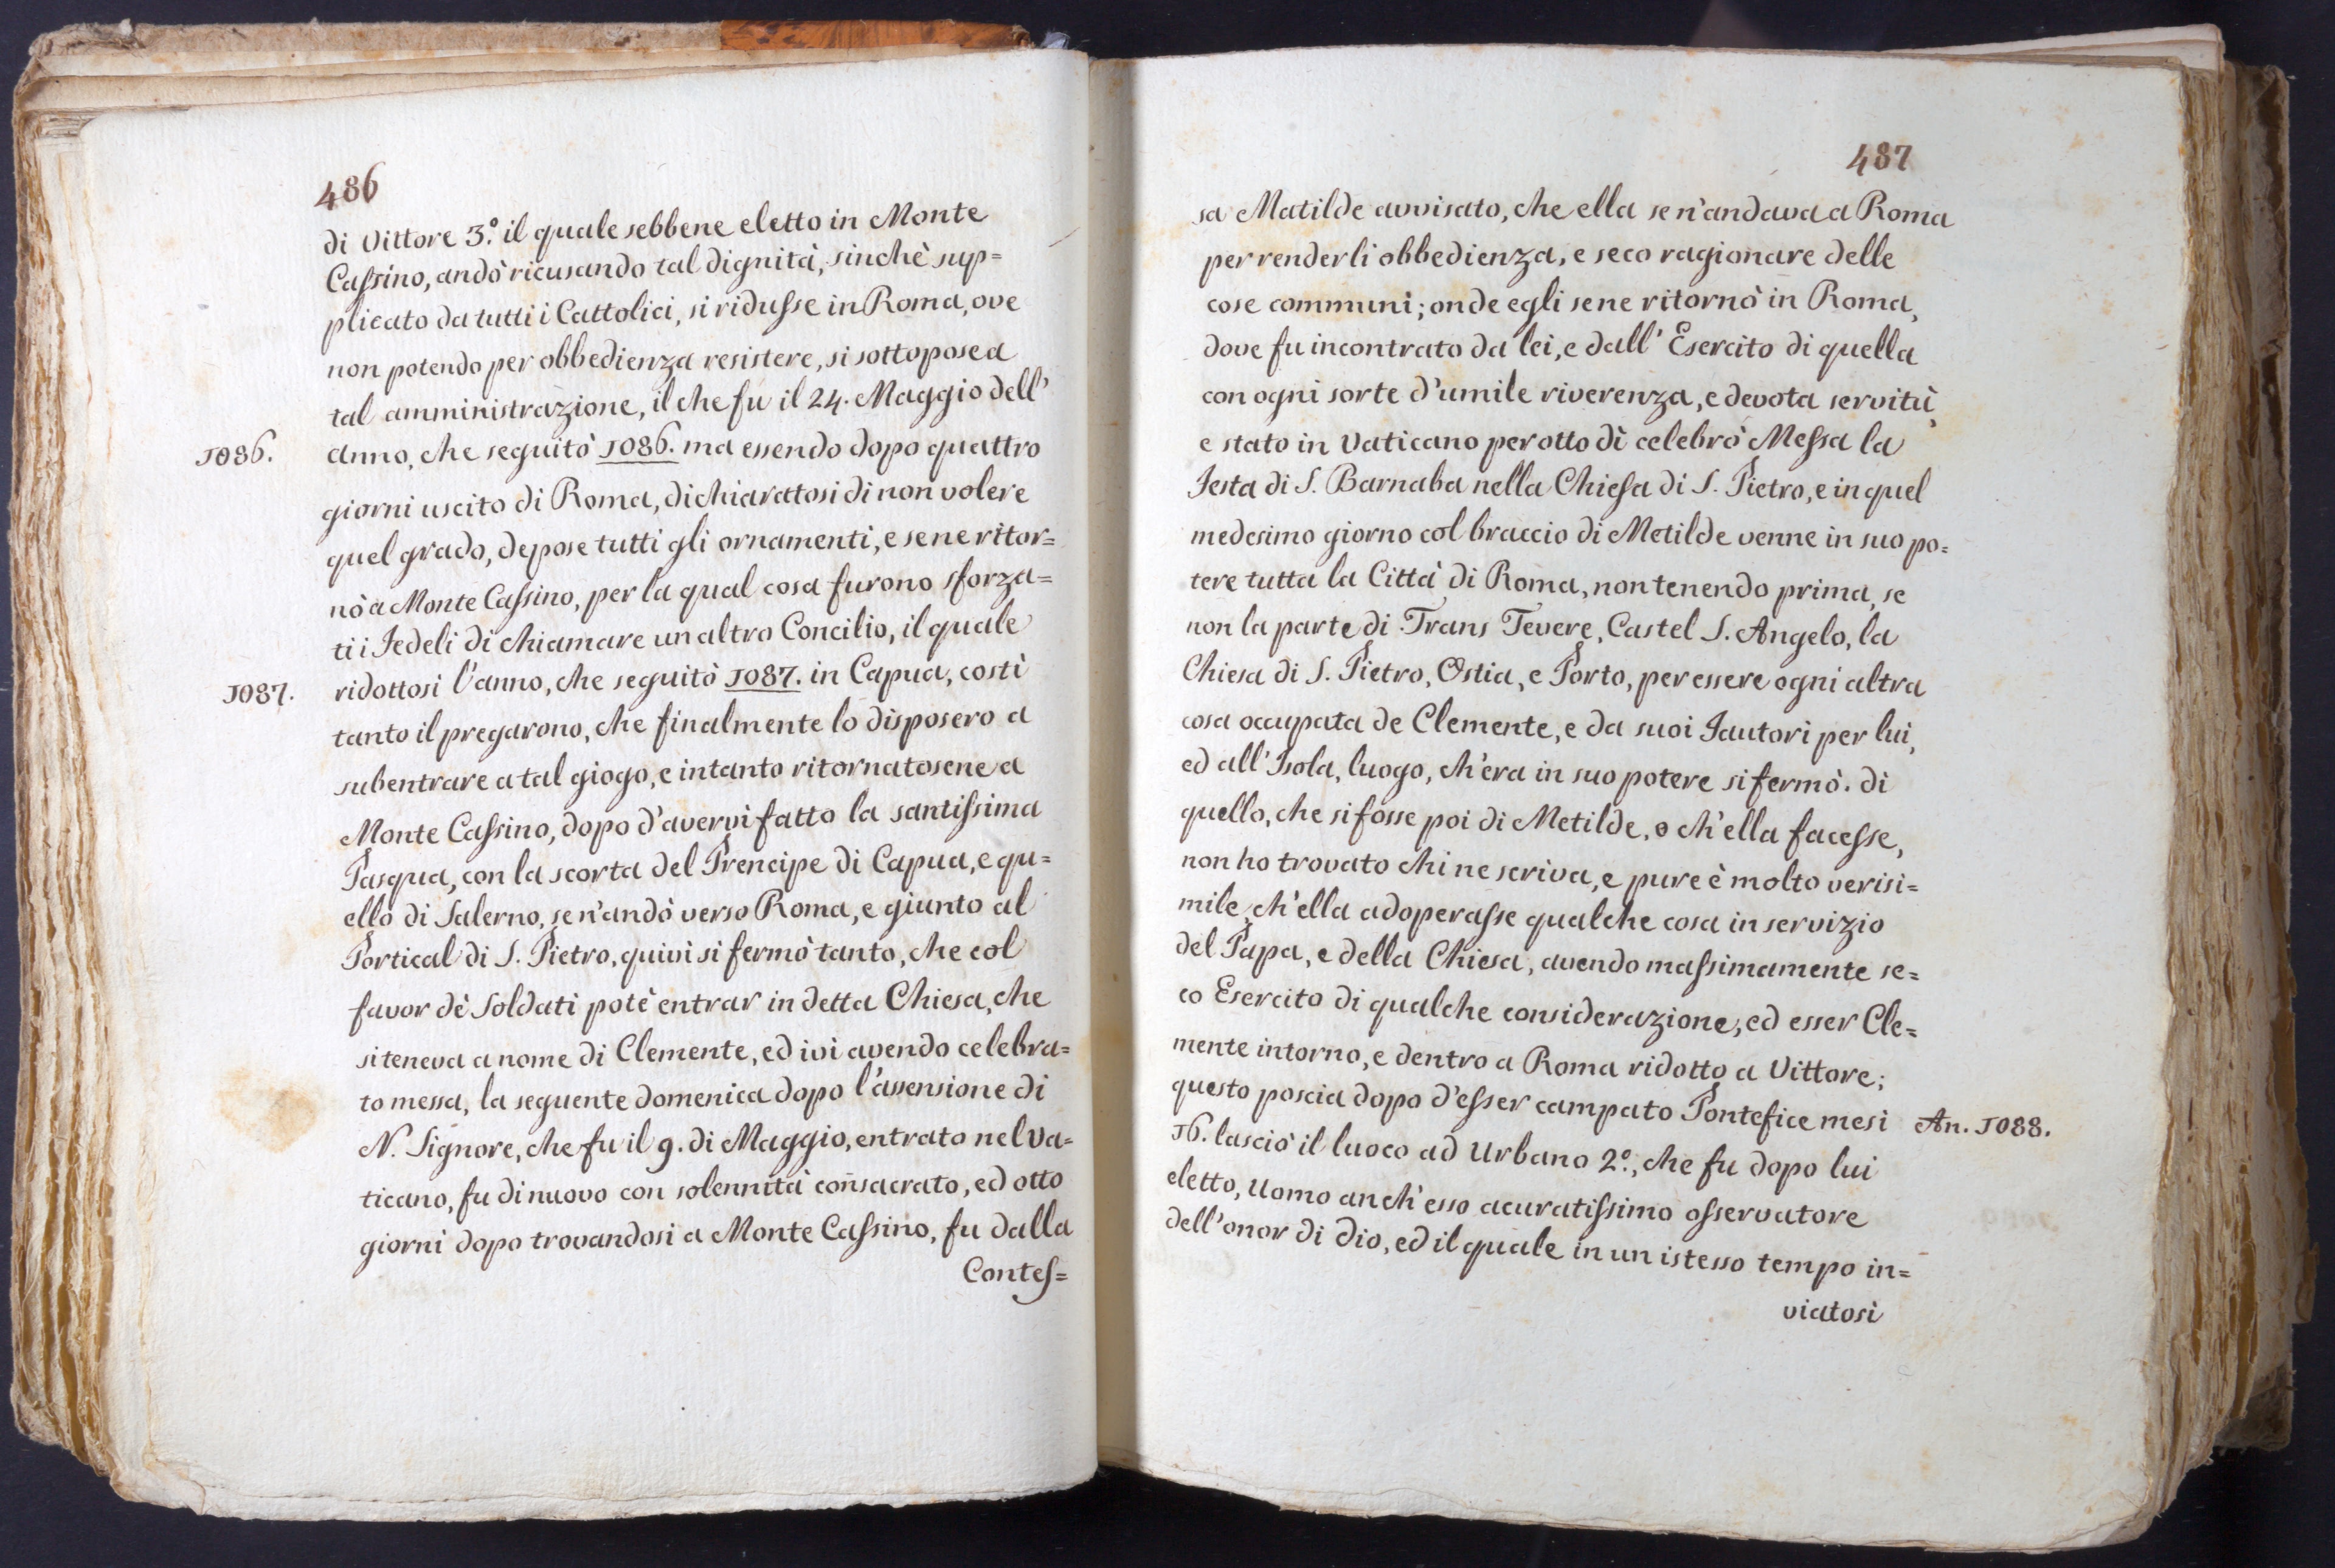 486
di Vittore 3.º il quale sebbene eletto in Monte
Caſsino, andò ricusando tal dignità, sinchè sup=
plicato da tutti i Cattolici, si riduſse in Roma, ove
non potendo per obbedienza resistere, si sottopose a
tal amministrazione, il che fu il 24. Maggio dell'
1086. anno, che seguitò 1086. ma essendo dopo quattro
giorni uscito di Roma, dichiaratosi di non volere
quel grado, depose tutti gli ornamenti, e se ne ritor=
nò a Monte Caſsino, per la qual cosa furono sforza=
ti i Fedeli di chiamare un altro Concilio, il quale
1087. ridottosi l'anno, che seguitò 1087. in Capua, costì
tanto il pregarono, che finalmente lo disposero a
subentrare a tal giogo, e intanto ritornatosene a
Monte Caſsino, dopo d'avervi fatto la santiſsima
Pasqua, con la scorta del Prencipe di Capua, e qu=
ello di Salerno, se n'andò verso Roma, e giunto al
Portical di S. Pietro, quivi si fermò tanto, che col
favor dè Soldati potè entrar in detta Chiesa, che
si teneva a nome di Clemente, ed ivi avendo celebra=
to messa, la seguente domenica dopo l'assensione di
N. Signore, che fu il 9. di Maggio, entrato nel Va=
ticano, fu di nuovo con solennità consacrato, ed otto
giorni dopo trovandosi a Monte Caſsino, fu dalla
Conteſ=
487
sa Matilde avvisato, che ella se n'andava a Roma
per renderli obbedienza, e seco ragionare delle
cose communi; onde egli se ne ritornò in Roma,
dove fu incontrato da lei, e dall' Esercito di quella
con ogni sorte d'umile riverenza, e devota servitù,
e stato in Vaticano per otto dì celebrò Meſsa la
Festa di S. Barnaba nella Chieſa di S. Pietro, e in quel
medesimo giorno col braccio di Metilde venne in suo po=
tere tutta la Città di Roma, non tenendo prima, se
non la parte di Trans Tevere, Castel S. Angelo, la
Chiesa di S. Pietro, Ostia, e Porto, per essere ogni altra
cosa occupata de Clemente, e da suoi Fautori per lui,
ed all' Isola, luogo, ch'era in suo potere si fermò. di
quello, che si fosse poi di Metilde, o ch'ella faceſse,
non ho trovato chi ne scriva, e pure è molto verisi=
mile, ch'ella adoperaſse qualche cosa in servizio
del Papa, e della Chiesa, avendo maſsimamente se=
co Esercito di qualche considerazione, ed esser Cle=
mente intorno, e dentro a Roma ridotto a Vittore;
questo poscia dopo d'eſser campato Pontefice mesi An. 1088.
16. lasciò il luoco ad Urbano 2.º, che fu dopo lui
eletto, Uomo anch'esso acuratiſsimo oſservatore
dell'onor di Dio, ed il quale in un istesso tempo in=
viatosi